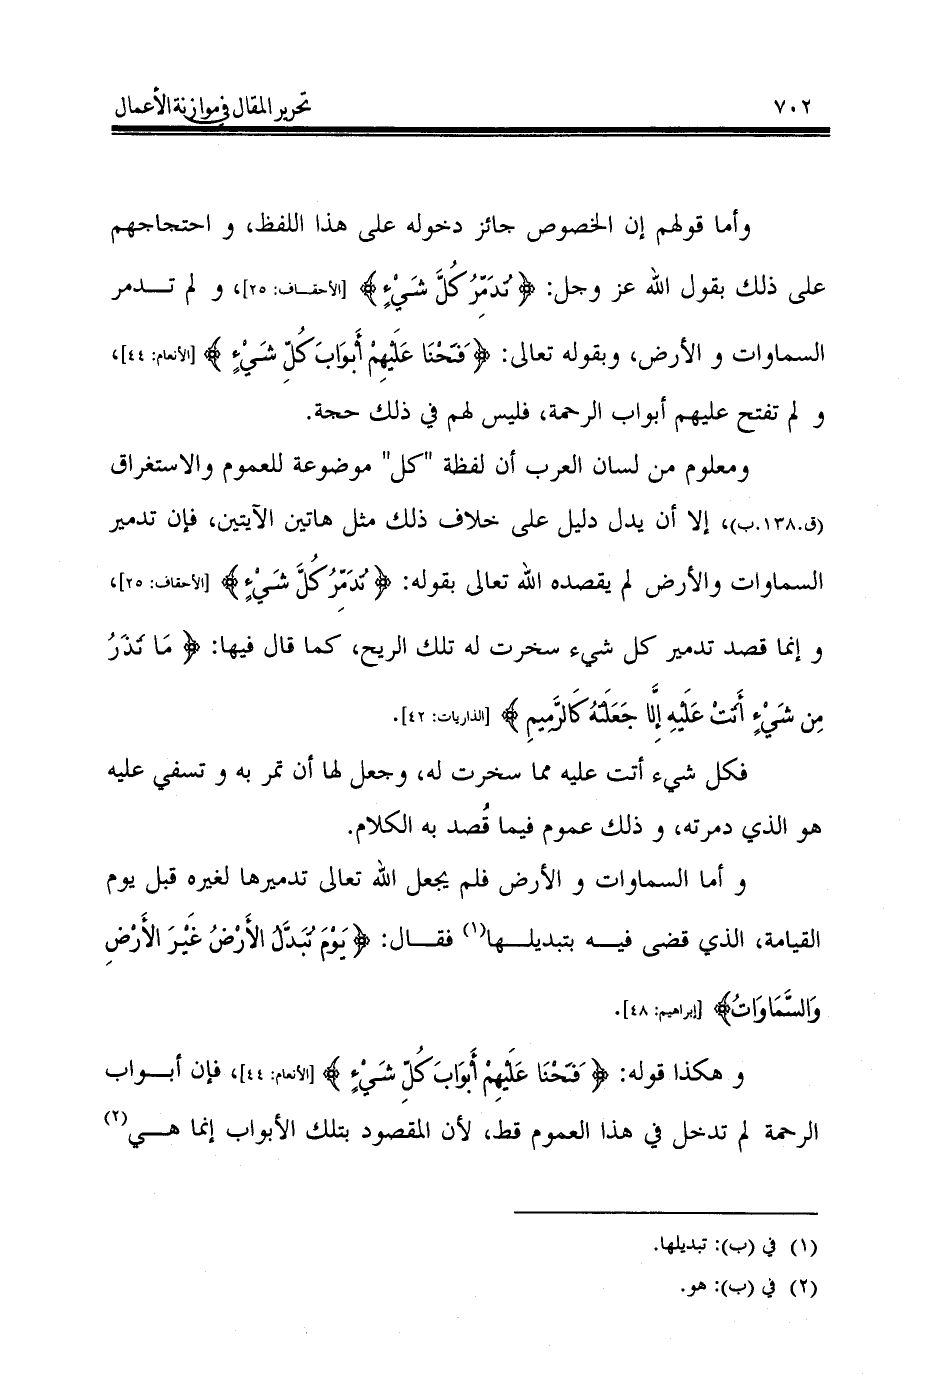 ٧٠٢ تحرير المقال في موازنة الأعمال
وأما قولهم إن الخصوص جائز دخوله على هذا اللفظ، و احتجاجهم
على ذلك بقول الله عز وجل: ﴿ تُدَمِّرُ كُلَّ شَيْءٍ ﴾ [الأحقاف: ٢٥]، و لم تدمر
السماوات و الأرض، وبقوله تعالى: ﴿ فَتَحْنَا عَلَيْهِمْ أَبْوَابَ كُلِّ شَيْءٍ ﴾ [الأنعام: ٤٤]،
و لم تفتح عليهم أبواب الرحمة، فليس لهم في ذلك حجة.
ومعلوم من لسان العرب أن لفظة "كل" موضوعة للعموم والاستغراق
(ق.١٣٨.ب)، إلا أن يدل دليل على خلاف ذلك مثل هاتين الآيتين، فإن تدمير
السماوات والأرض لم يقصده الله تعالى بقوله: ﴿ تُدَمِّرُ كُلَّ شَيْءٍ ﴾ [الأحقاف: ٢٥]،
و إنما قصد تدمير كل شيء سخرت له تلك الريح، كما قال فيها: ﴿ مَا تَذَرُ
مِن شَيْءٍ أَتَتْ عَلَيْهِ إِلَّا جَعَلَتْهُ كَالرَّمِيمِ ﴾ [الذاريات: ٤٢].
فكل شيء أتت عليه مما سخرت له، وجعل لها أن تمر به و تسفي عليه
هو الذي دمرته، و ذلك عموم فيما قُصد به الكلام.
و أما السماوات و الأرض فلم يجعل الله تعالى تدميرها لغيره قبل يوم
القيامة، الذي قضى فيه بتبديلها(١) فقال: ﴿ يَوْمَ تُبَدَّلُ الأَرْضُ غَيْرَ الأَرْضِ
وَالسَّمَاوَاتُ﴾ [إبراهيم: ٤٨].
و هكذا قوله: ﴿ فَتَحْنَا عَلَيْهِمْ أَبْوَابَ كُلِّ شَيْءٍ ﴾ [الأنعام: ٤٤]، فإن أبواب
الرحمة لم تدخل في هذا العموم قط، لأن المقصود بتلك الأبواب إنما هي(٢)
(١) في (ب): تبديلها.
(٢) في (ب): هو.